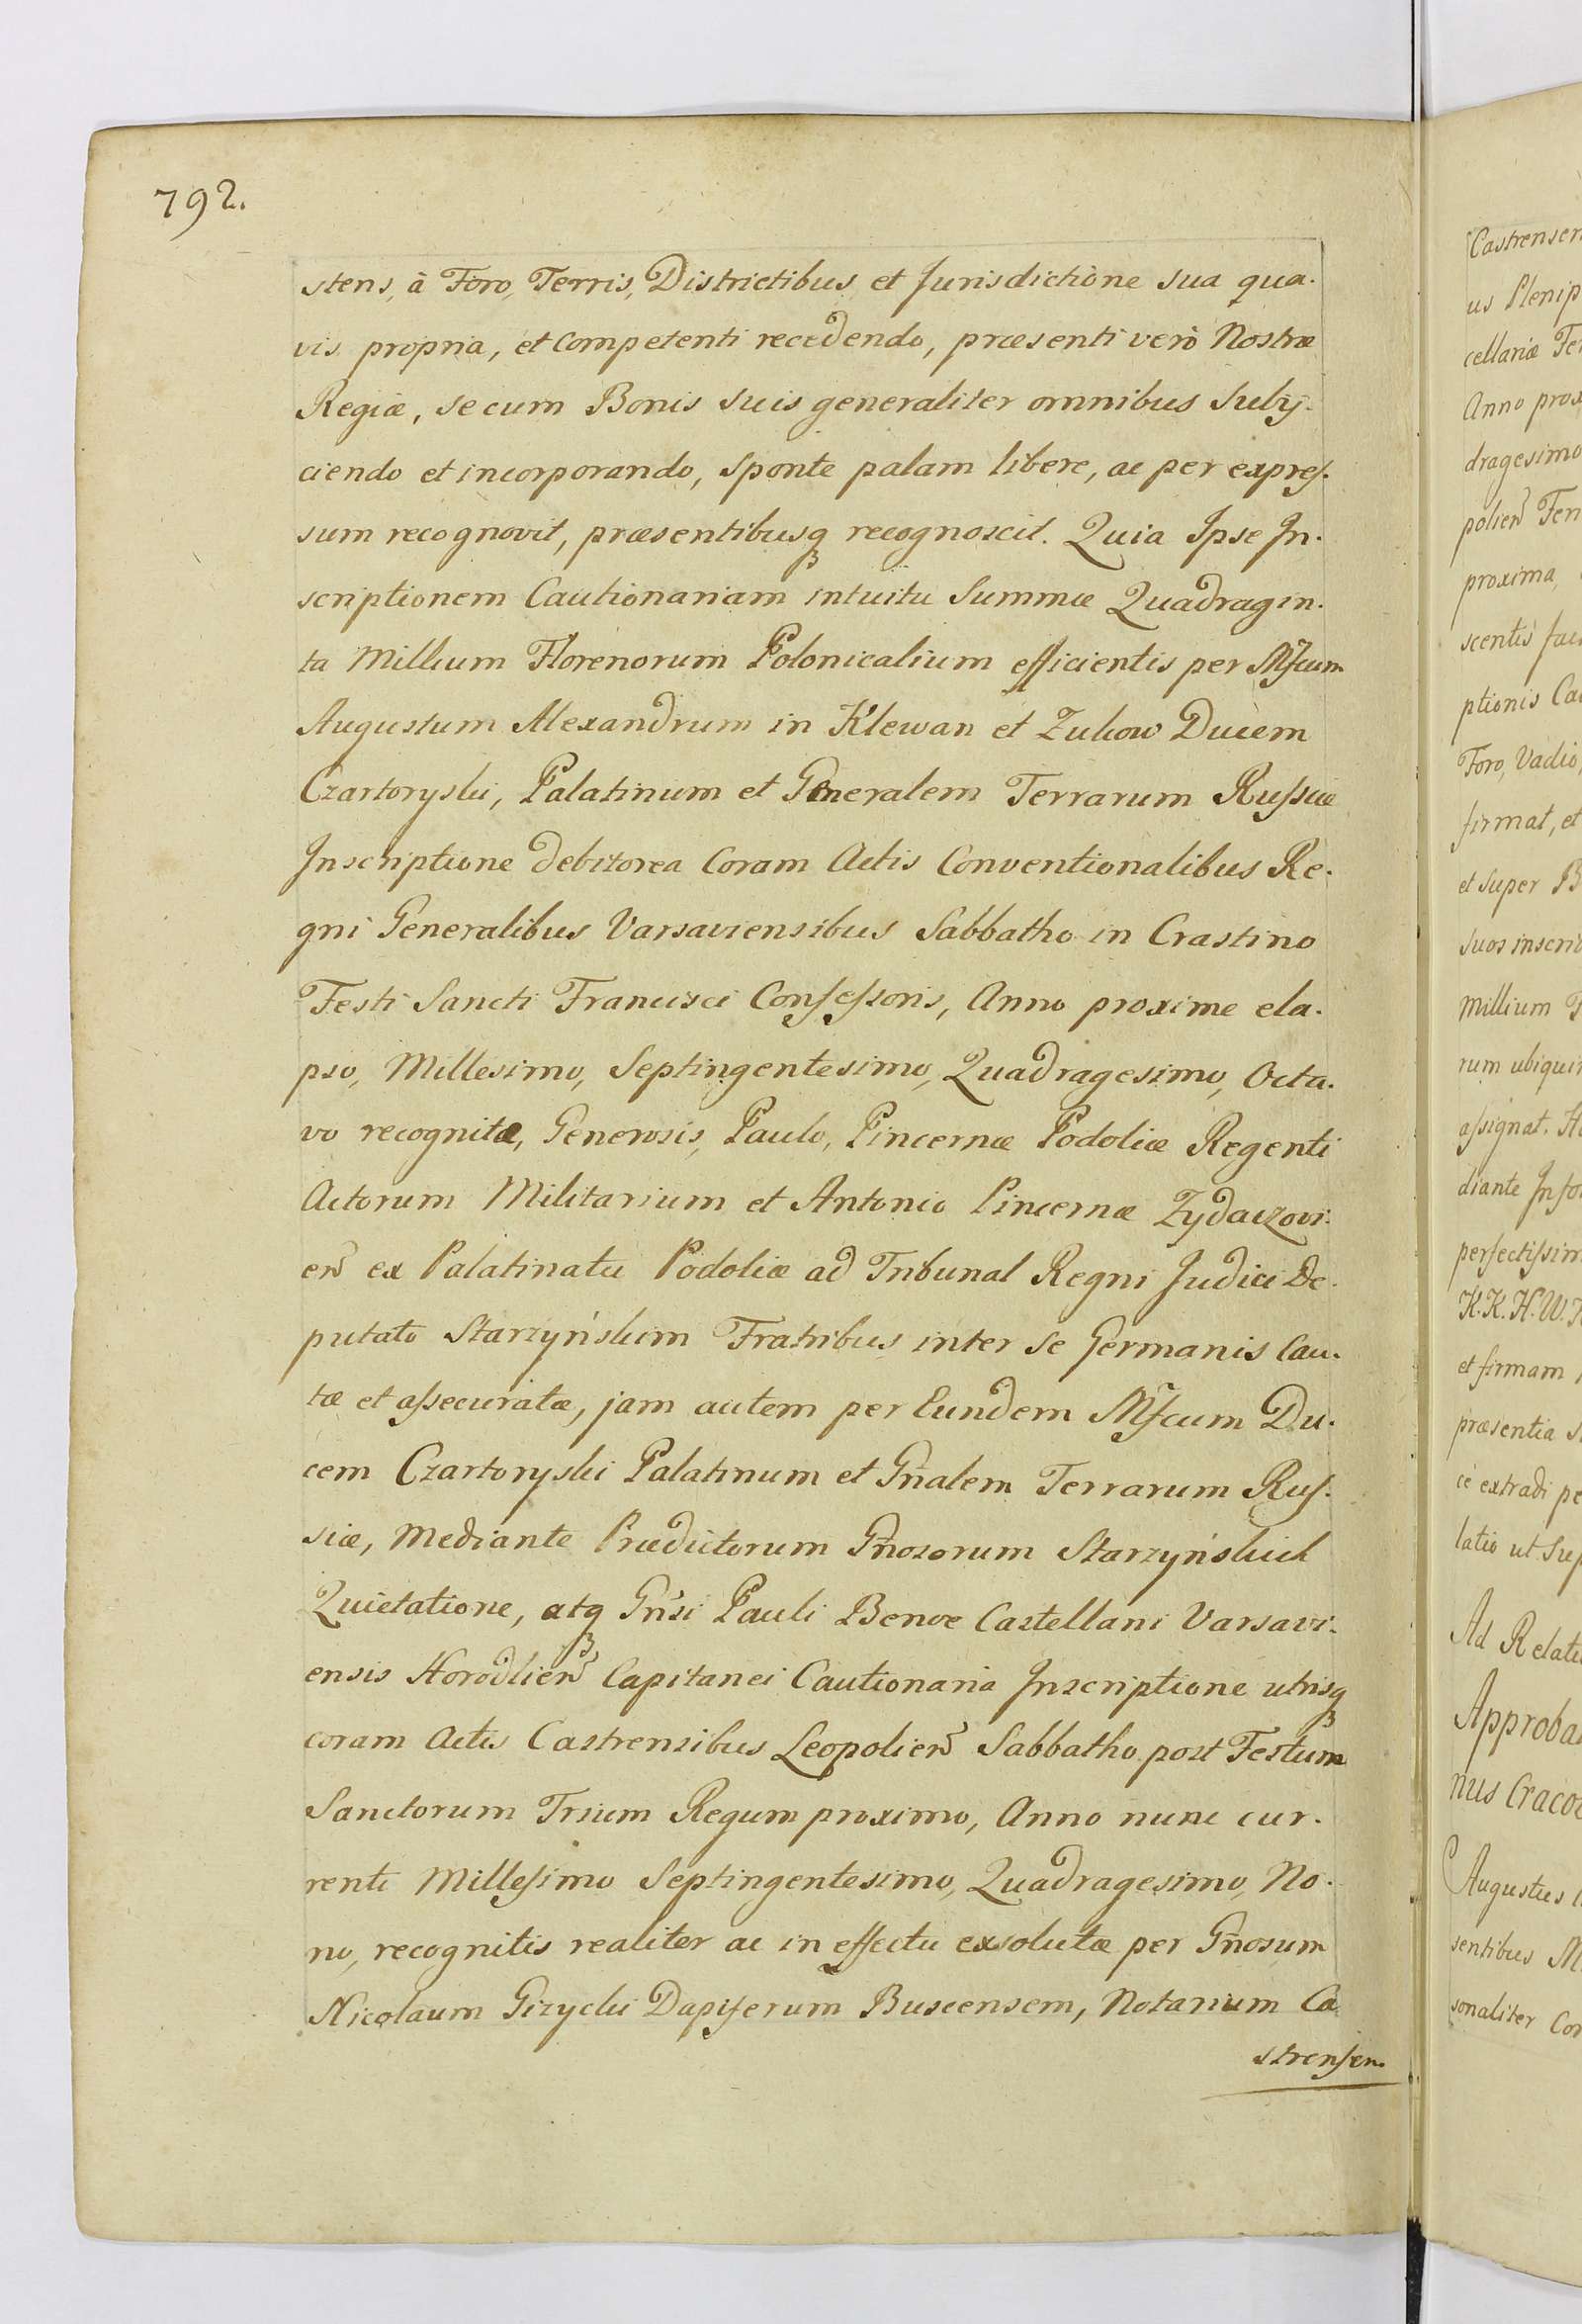 792.
stens, à Foro, Terris, Districtibus et Jurisdictione sua qua.
vis propria, et Competenti recedendo, præsenti verò Nostræ
Regiæ, se cum Bonis suis generaliter omnibus Subij.
ciendo et incorporando, sponte palam libere, ac per expres.
sum recognovit, præsentibusq recognoscit. Quia Ipse In.
scriptionem Cautionariam intuitu Summæ Quadragin.
ta Millium Florenorum Polonicalium efficientis per Mfcum
Augustum Alexandrum in Klewan et Zukow Ducem
Czartoryski, Palatinum et Generalem Terrarum Russiæ
Inscriptione debitorea Coram Actis Conventionalibus Re.
gni Generalibus Varsaviensibus Sabbatho in Crastino
Festi Sancti Francisci Confessoris, Anno proxime ela.
pso, Millesimo, Septingentesimo, Quadragesimo, Octa.
vo recognitæ, Generosis, Paulo, Pincernæ Podoliæ Regenti
Actorum Militarium et Antonio Pincernæ Zydaczovi.
eñ ex Palatinatu Podoliæ ad Tribunal Regni Judici De.
putato Starzyńskim Fratribus inter se Germanis Cau.
tæ et assecuratæ, jam autem per Eundem Mfcum Du.
cem Czartoryski Palatinum et Gñalem Terrarum Rus.
siæ, Mediante Prædictorum Gñosorum Starzyńskich
Quietatione, atq Gñsi Pauli Benoe Castellani Varsavi.
ensis Horodlieñ Capitanei Cautionaria Inscriptione utrisq
coram Actis Castrensibus Leopolieñ Sabbatho post Festum
Sanctorum Trium Regum proximo, Anno nunc cur.
renti Millesimo Septingentesimo, Quadragesimo, No.
no, recognitis realiter ac in effectu exsolutæ per Gñosum
Nicolaum Gizycki Dapiferum Buscensem, Notarium Ca
strensem
Castrensem
us Plenip
cellariæ Te
Anno prox
dragesimo
polieñ Fer
proxima,
scentis fac
ptionis Ca
Foro, Vadio,
firmat, et
et super B
suos inscrib
Millium
rum ubiqui
assignat. H
diante Info
perfectissim
K. K. H. W.
et firmam
præsentia
ce extradi pe
latio ut Sup
Ad Relati
Approba
nus Craco
Augustus
sentibus M
sonaliter Com